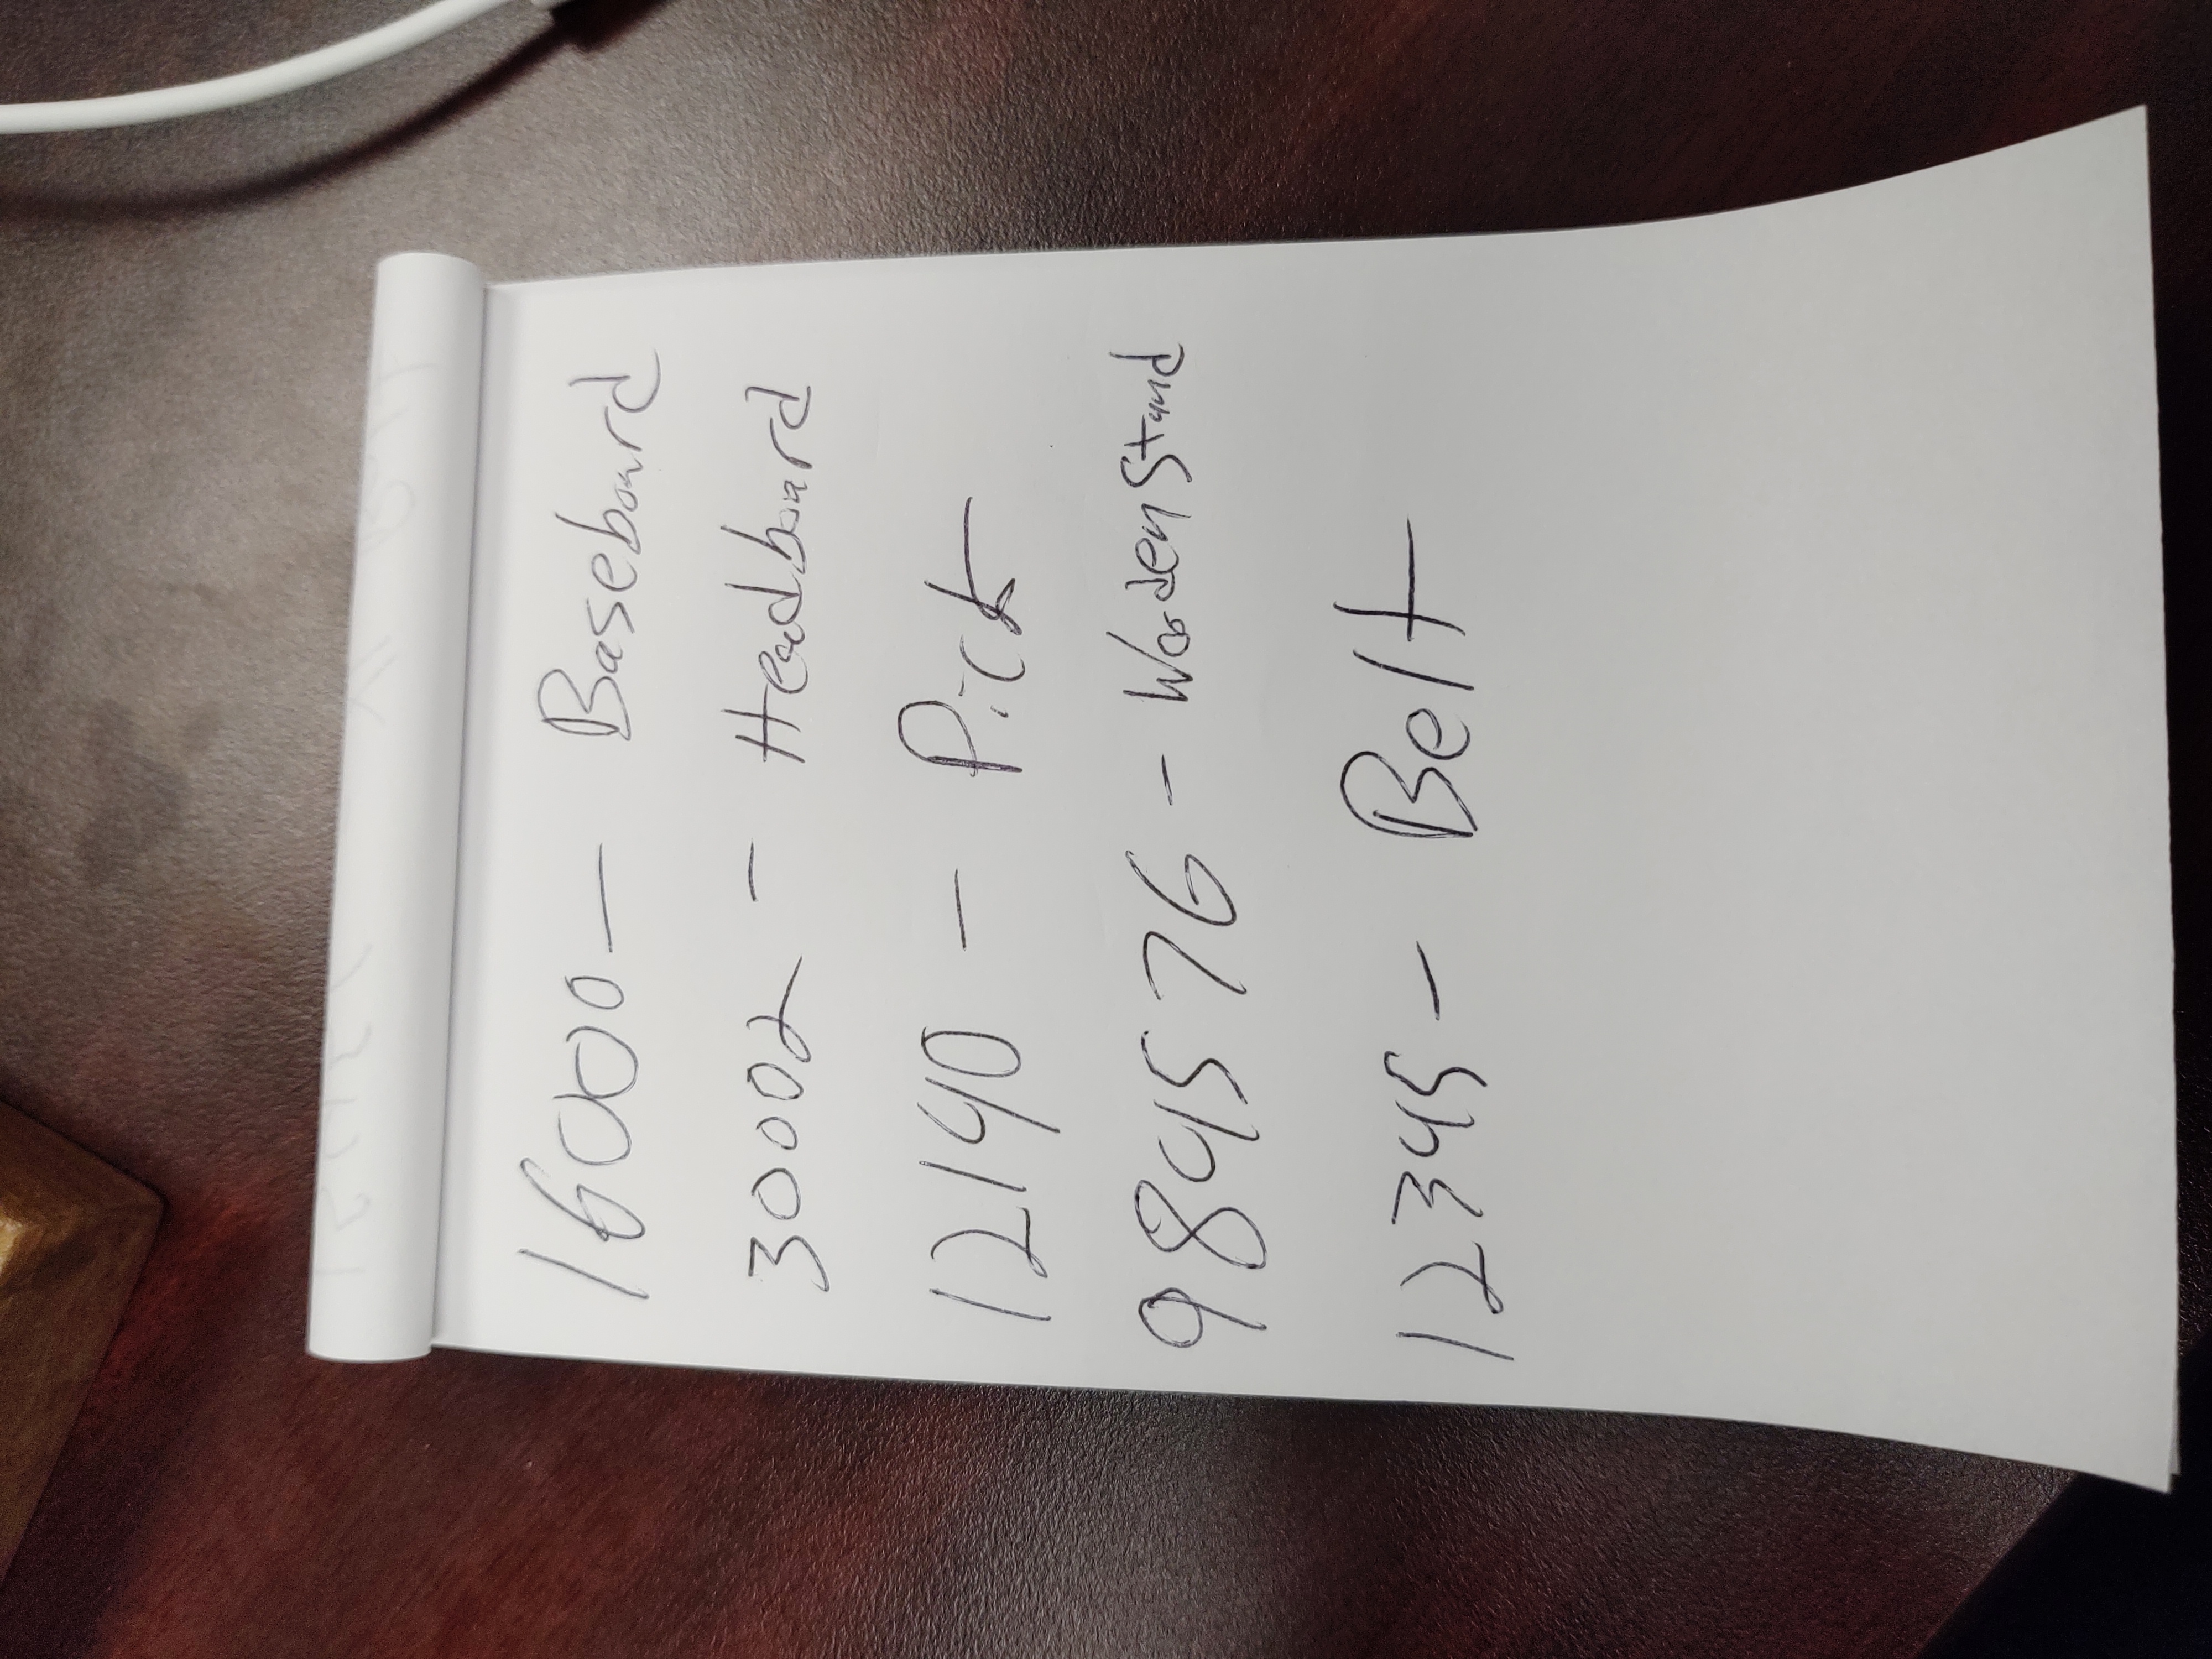 16000 - Baseboard
30002 - Headboard
12140 - Pick
984576 - Wooden Stand
12345 - Belt